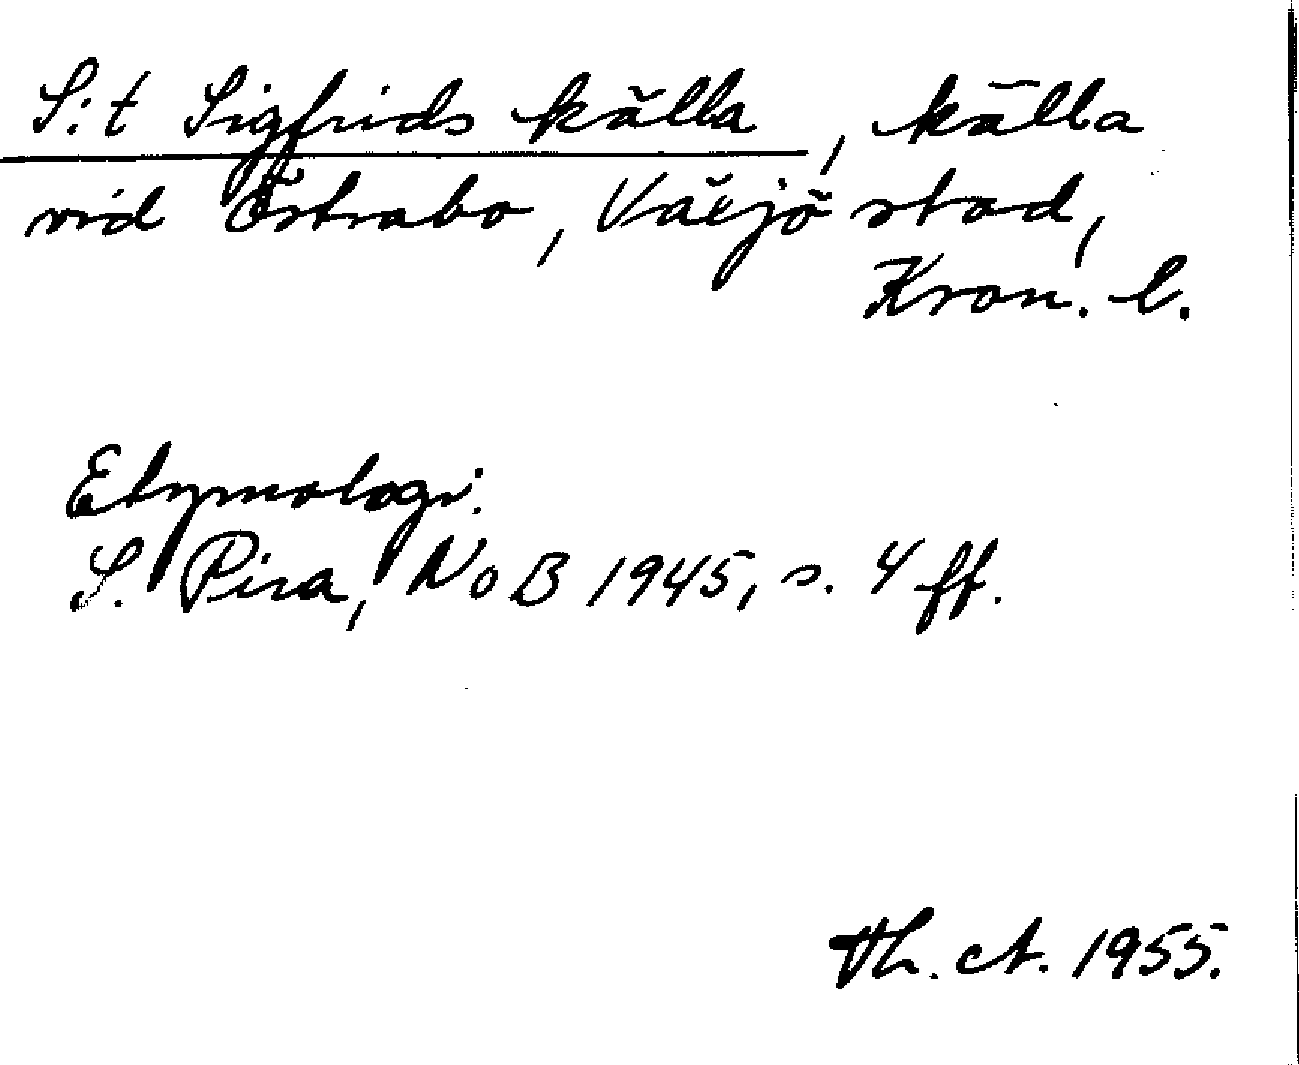 S:t Sigfrids källa, källa
vid Östrabo, Växjö stad,
Kron. l.
Etymologi:
S. Pira, NoB 1945, s. 4 ff.
Th. A. 1955.